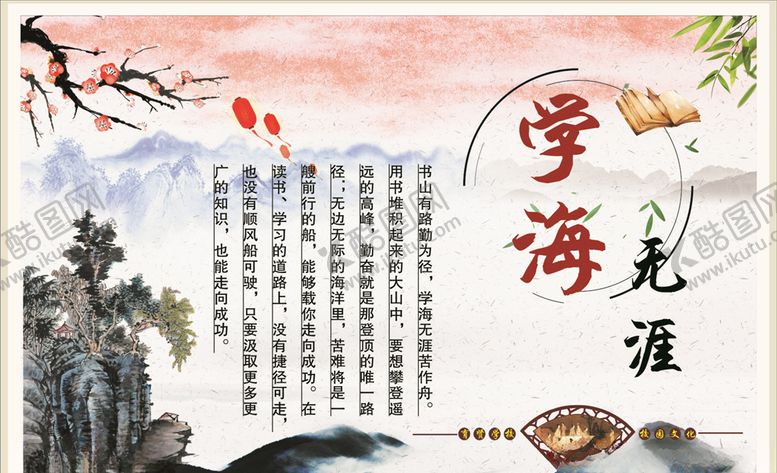 学海
无涯
书山有路勤为径，学海无涯苦作舟。
用书堆积起来的大山中，要想攀登遥
远的高峰，勤奋就是那登顶的唯一路
径；无边无际的海洋里，苦难将是一
艘前行的船，能够载你走向成功。在
读书、学习的道路上，没有捷径可走，
也没有顺风船可驶，只要汲取更多更
广的知识，也能走向成功。
校园文化
酷图网
www.ikutu.com
酷图网
www.ikutu.com
酷图网
www.ikutu.com